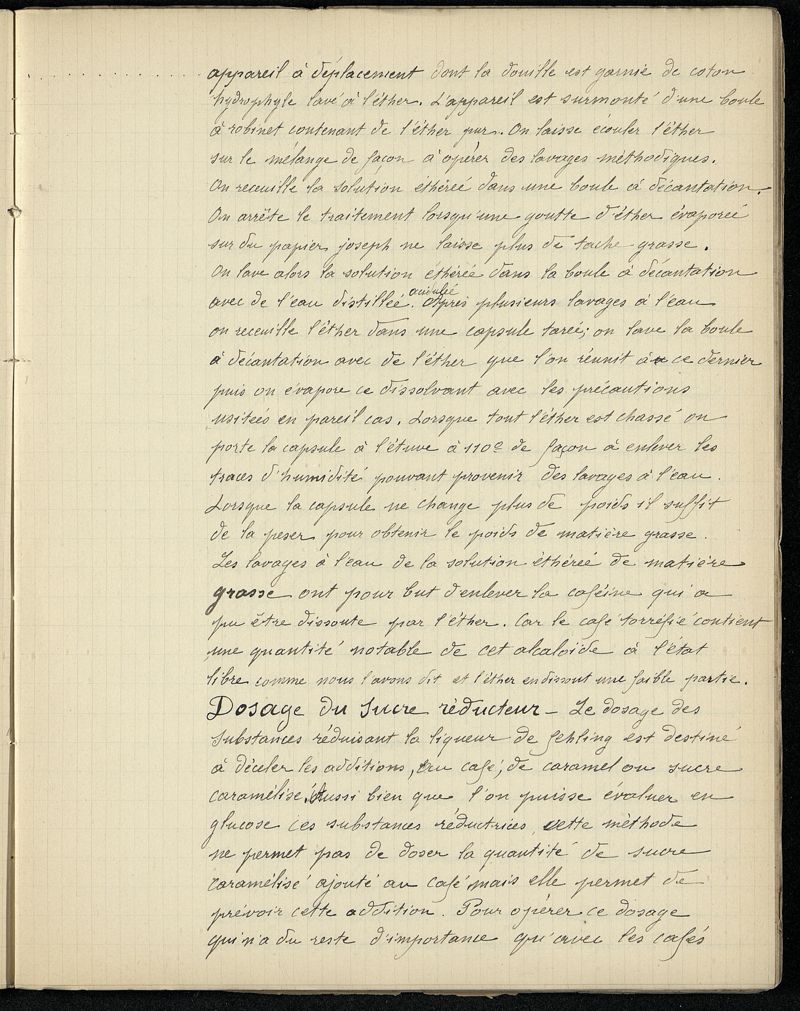 appareil à déplacement dont la douille est garnie de coton
hydrophyle lavé à l'éther. L'appareil est surmonté d'une boule
à robinet contenant de l'éther pur. On laisse écouler l'éther
sur le mélange de façon à opérer des lavages méthodiques.
On receuille la solution éthérée dans une boule à décantation.
On arrête le traitement lorsqu'une goutte d'éther évaporée
sur du papier joseph ne laisse plus de tache grasse.
On lave alors la solution éthérée dans la boule à décantation
acidulée
avec de l'eau distillée. Après plusieurs lavages à l'eau
on receuille l'éther dans une capsule tarée; on lave la boule
à décantation avec de l'éther que l'on réunit à ce dernier
puis on évapore ce dissolvant avec les précautions
usitées en pareil cas. Lorsque tout l'éther est chassé on
porte la capsule à l'étuve à 110° de façon à enlever les
traces d'humidité pouvant provenir des lavages à l'eau.
Lorsque la capsule ne change plus de poids il suffit
de la peser pour obtenir le poids de matière grasse.
Les lavages à l'eau de la solution éthérée de matière
grasse ont pour but d'enlever la caféine qui a
pu être dissoute par l'éther. Car le café torréfié contient
une quantité notable de cet alcaloïde à l'état
libre comme nous l'avons dit et l'éther en dissout une faible partie.
Dosage du Sucre réducteur - Le dosage des
substances réduisant la liqueur de fehling est destiné
à déceler les additions, au café, de caramel ou sucre
caramélisé. Aussi bien que l'on puisse évaluer en
glucose ces substances réductrices, cette méthode
ne permet pas de doser la quantité de sucre
caramélisé ajouté au café mais elle permet de
prévoir cette addition. Pour opérer ce dosage
qui n'a du reste d'importance qu'avec les cafés